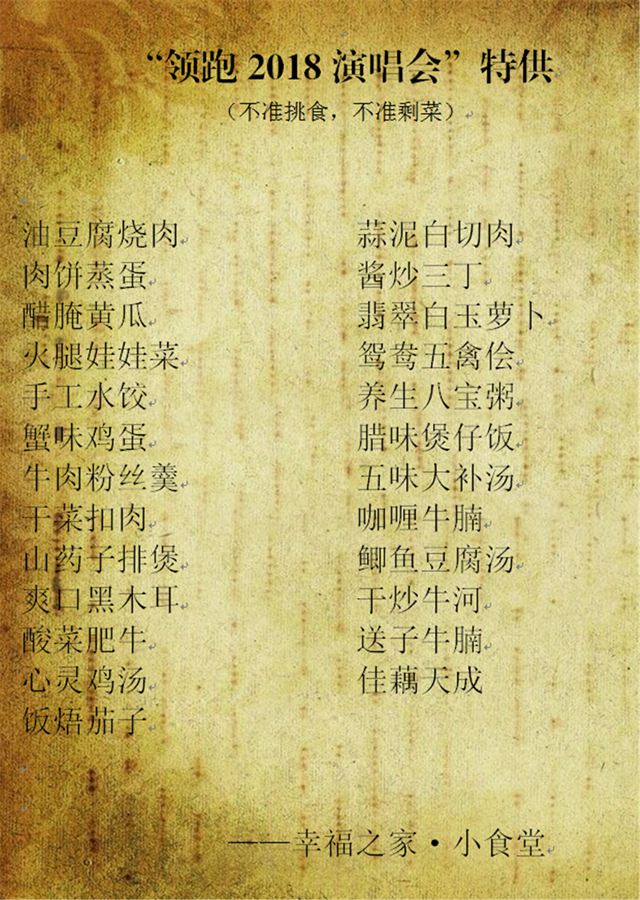 “领跑 2018 演唱会”特供
（不准挑食，不准剩菜）
油豆腐烧肉
肉饼蒸蛋
醋腌黄瓜
火腿娃娃菜
手工水饺
蟹味鸡蛋
牛肉粉丝羹
干菜扣肉
山药子排煲
爽口黑木耳
酸菜肥牛
心灵鸡汤
饭焐茄子
蒜泥白切肉
酱炒三丁
翡翠白玉萝卜
鸳鸯五禽侩
养生八宝粥
腊味煲仔饭
五味大补汤
咖喱牛腩
鲫鱼豆腐汤
干炒牛河
送子牛腩
佳藕天成
——幸福之家·小食堂